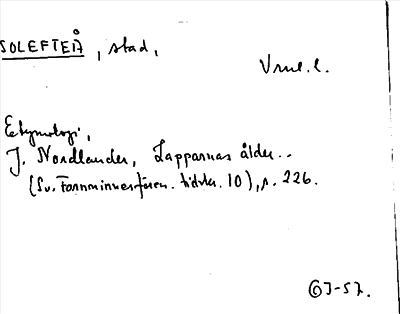 SOLEFTEÅ, stad,
Vml. l.
Etymologi,
J. Nordlander, Lapparnas ålder..
(Sv. Fornminnesfören. tidskr. 10), s. 226.
GJ-57.